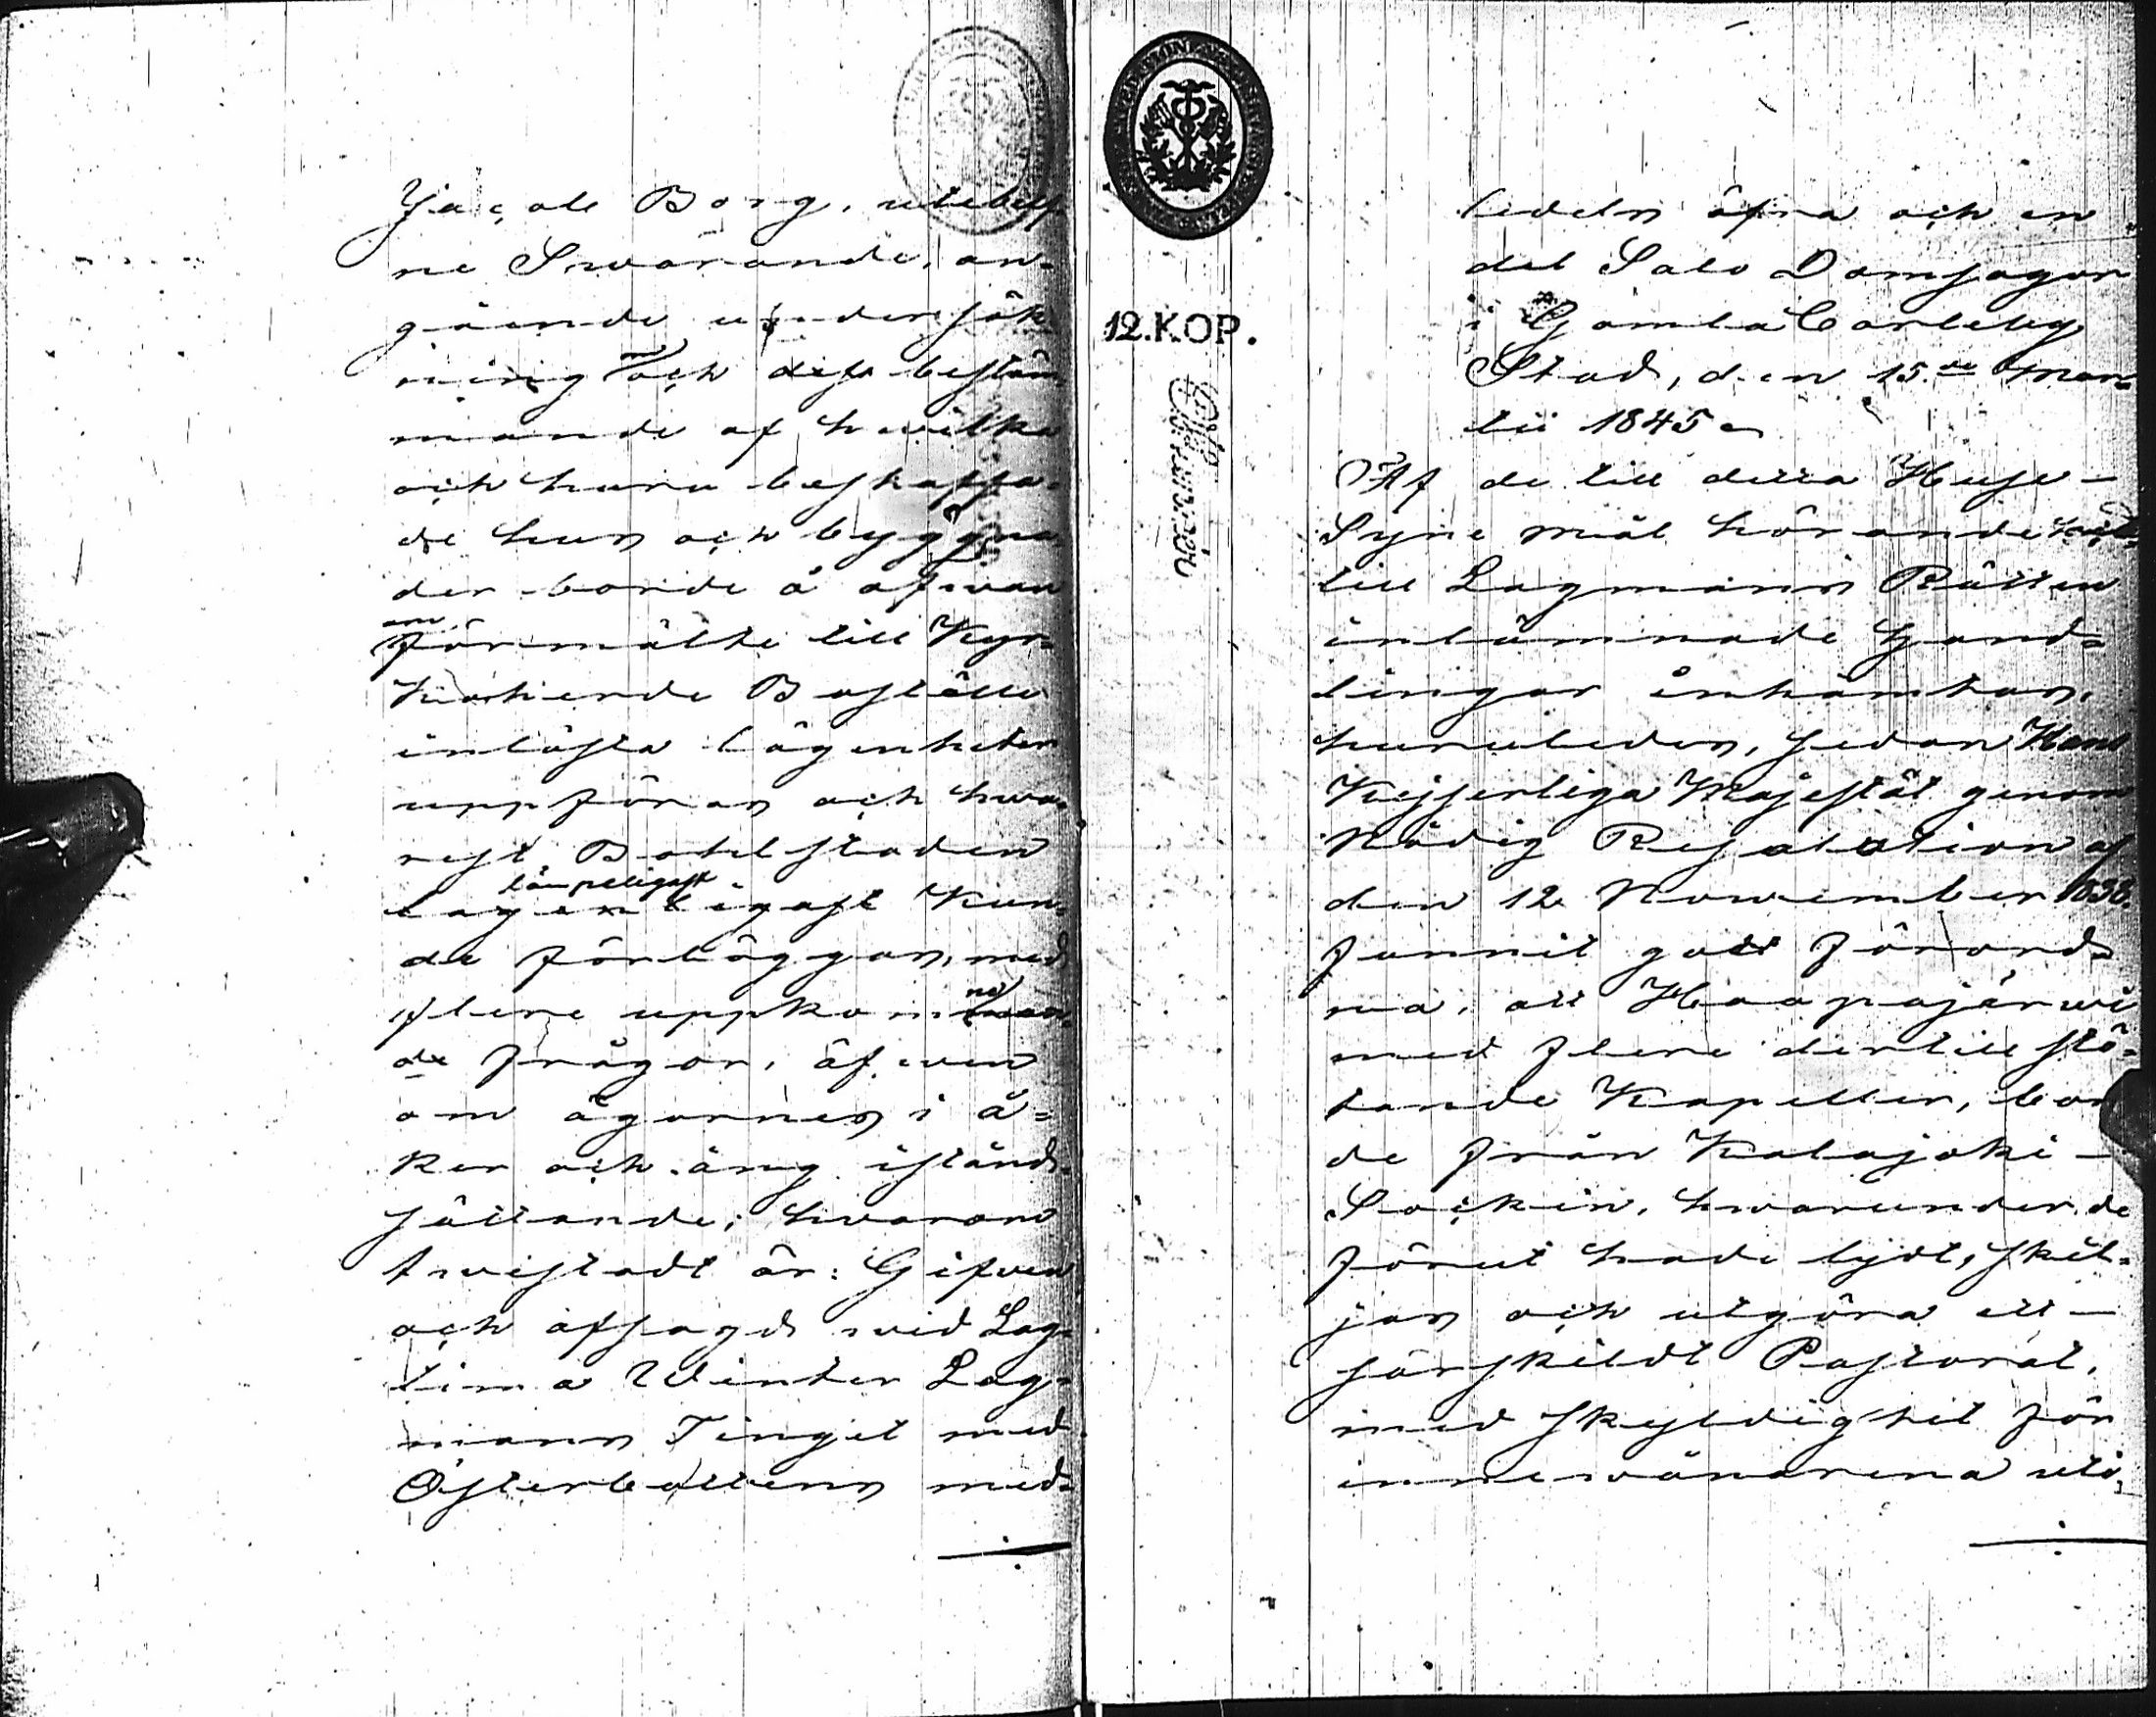 Jacob Borg, utebлif
ne Swarande, an-
gående undersök
ning och dess bestäm
mande af hwilka
och huru beskaffa-
de hus och byggna
der borde å ofwan
förmälte till Kyr-
koherde Boställe
inlösta lägenheter
uppföras och hwa-
rest Bohlstaden
lämpeligast
lägenligast kun-
de förläggas, med
flere uppkomman-
de frågor, äfwen
om ägornes i å-
ker och äng iständ-
sättande; hwarom
twistadt är: Gifwen
och afsagd wid Lag-
tima Winter Lag-
mans Tinget med
Österbottens med-
12.KOP.
ledels öfra och en
del Salo Domsagor
i Gamla Carleby
Stad, den 15.de Mar-
tii 1845
Af de till detta Huse-
Syne mål hörande
till Lagmans Rätten
inlämnade Hand-
lingar inhämtas,
huruledes, sedan Hans
Kejserliga Majestät genom
Nådig Resolution af
den 12 November 1838
funnit godt förord-
na, att Haapajärwi
med flere dertill stö-
tande Kapeller, bor
de från Kalajoki
Sockin, hwarunder de
förut hade lydt, skil-
jas och utgöra ett
särskildt Pastorat,
med skyldighet för
innewånarena uti